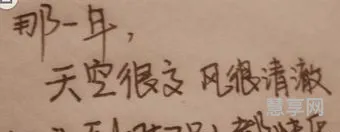 那一年，
天空很高 风很清澈
慧享网